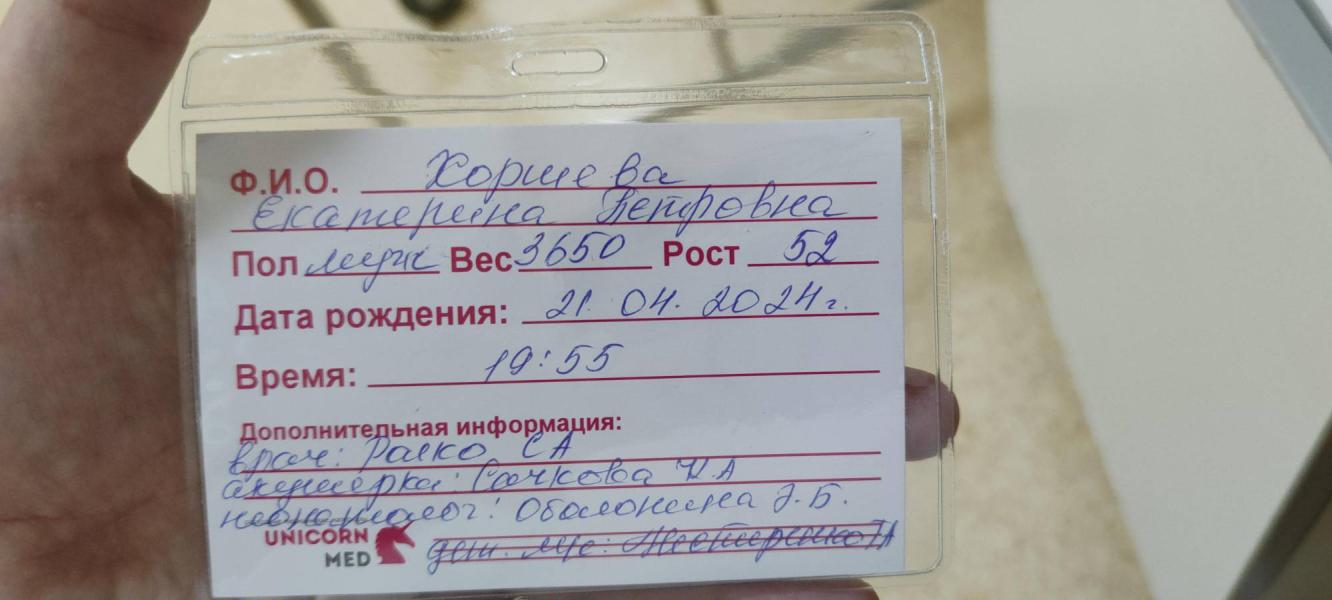 Ф.И.О. Хоршева
Екатерина Петровна
Пол муж Вес 3650 Рост 52
Дата рождения: 21.04.2024г.
Время: 19:55
Дополнительная информация:
врач: Ралко СА
акушерка: Сачкова Н.А
неонатолог: Оболонкина Э.Б.
дет. м/с: Нестеренко
UNICORN
MED